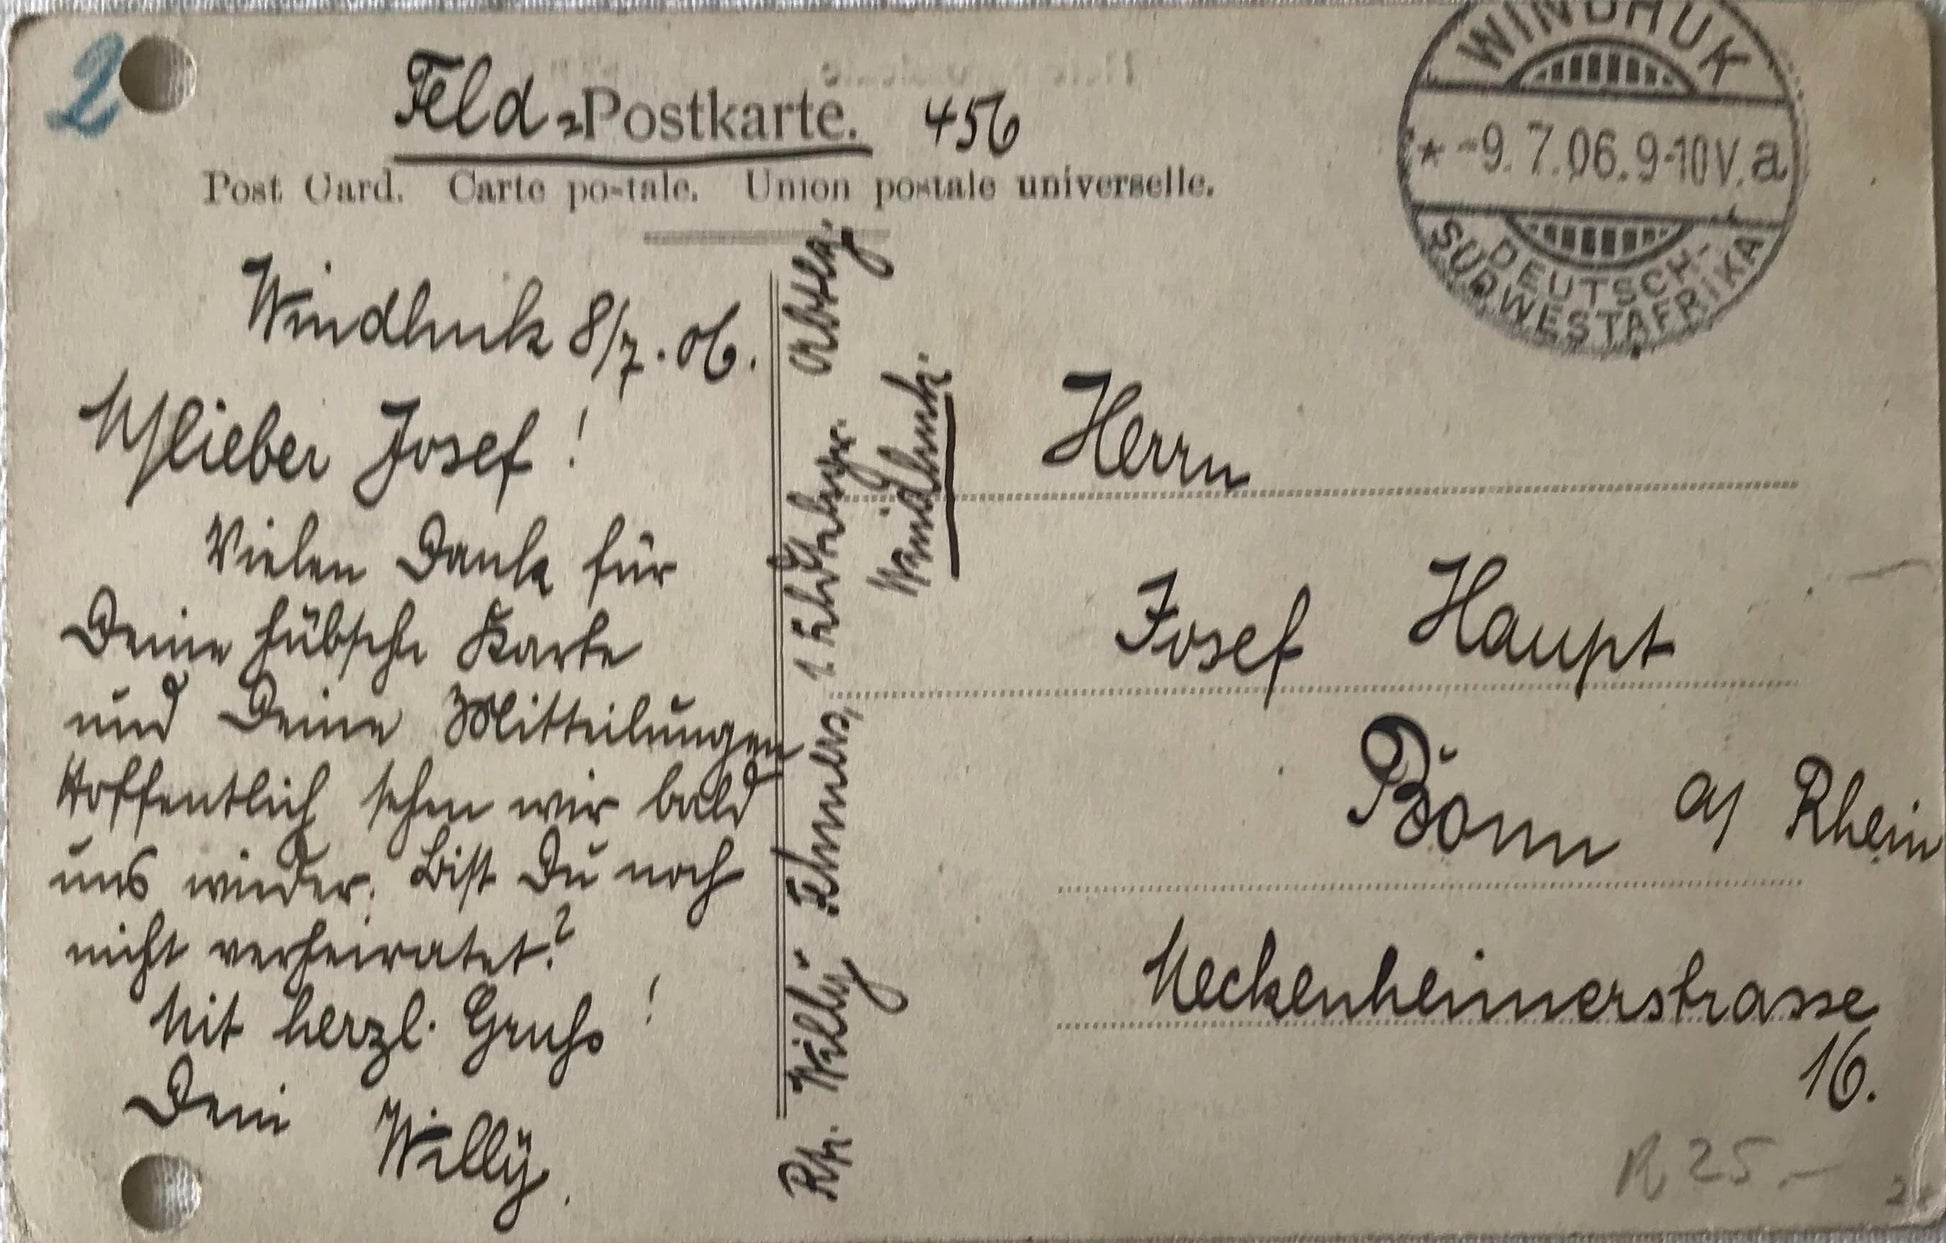 2
Feld-Postkarte. 456
Post Card. Carte postale. Union postale universelle.
WINDHUK
* -9.7.06.9-10V. a
DEUTSCH-
SÜDWESTAFRIKA
Windhuk 8/7.06.
Mlieber Josef!
Vielen Dank für
Deine hübsche Karte
und Deine Mitteilungen
Hoffentlich sehen wir bald
uns wieder. Bist Du noch
nicht verheiratet?
Mit herzl. Gruhs!
Dein Willÿ.
Rtr. Willÿ 1.
Windhuk.
Herrn
Josef Haupt
Bonn a/ Rhein
Meckenheimerstrasse
16.
R 25,-